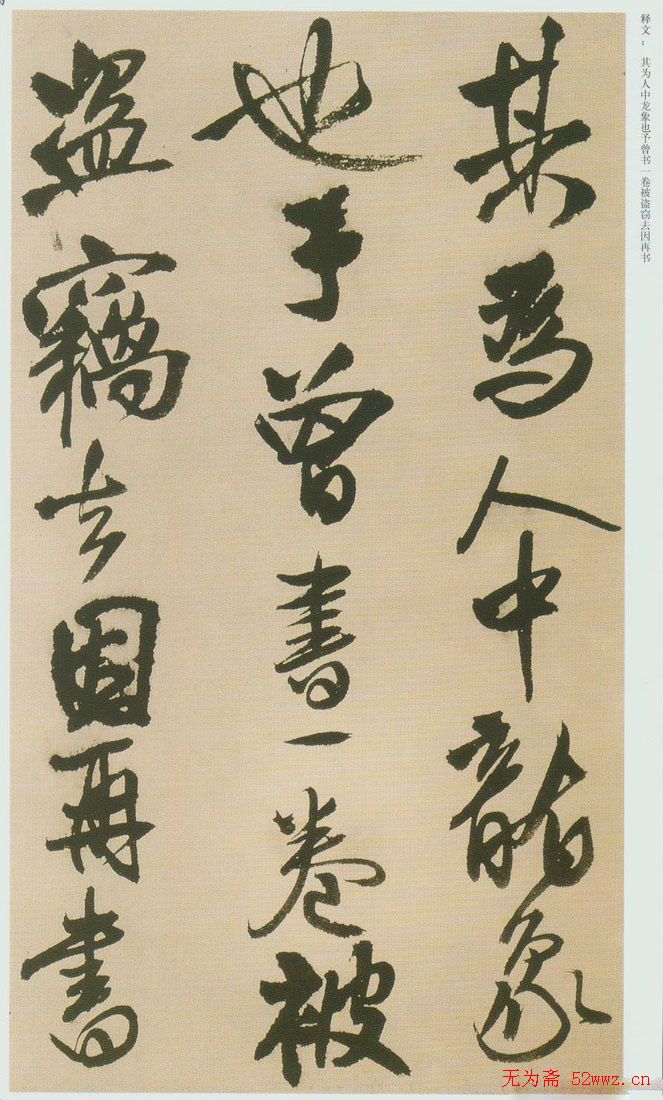 释文： 其为人中龙象也予曾书一卷被盗窃去因再书
其為人中龍象
也予曾書一卷被
盜竊去因再書
无为斋 52wwz.cn